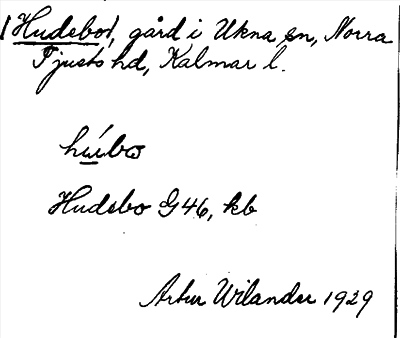 (Hudebo), gård i Ukna sn, Norra
Tjusts hd, Kalmar l.
húbo
Hudebo G46, kb
Artur Wilander 1929